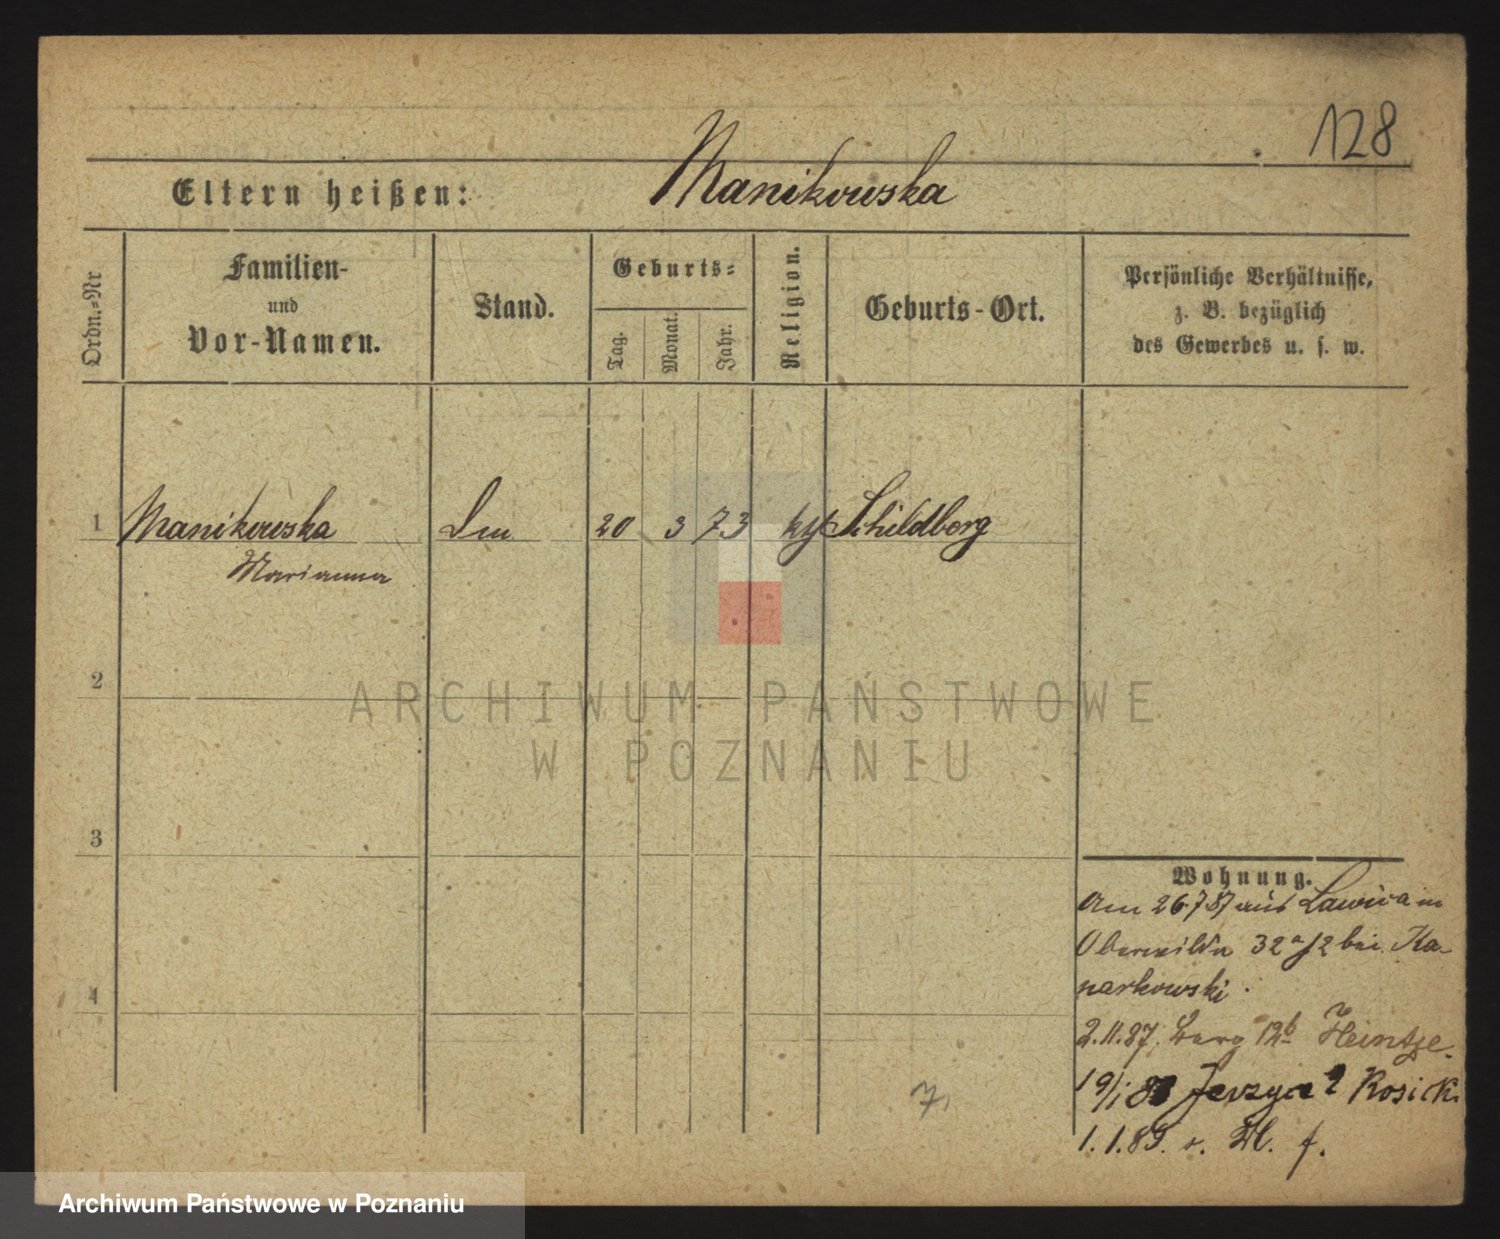 128
Eltern heißen: Manikowska
Ordn.-Nr
Familien-
und
Vor-Namen.
Stand.
Geburts-
Tag.
Monat.
Jahr.
Religion.
Geburts-Ort.
Persönliche Verhältnisse,
z. B. bezüglich
des Gewerbes u. s. w.
1 Manikowska 20 3 73 Schildberg
Marianna
2
ARCHIWUM PAŃSTWOWE
W POZNANIU
3
Wohnung.
Am 26 7 87 aus Lawica in
Oberwilda 32a/2 bei Ka-
narkowski.
4
2.11.87. Berg 12b Heintze.
19/1 88 Jerzyce 2 Rosick.
7,
1.1.89. v. f.
Archiwum Państwowe w Poznaniu